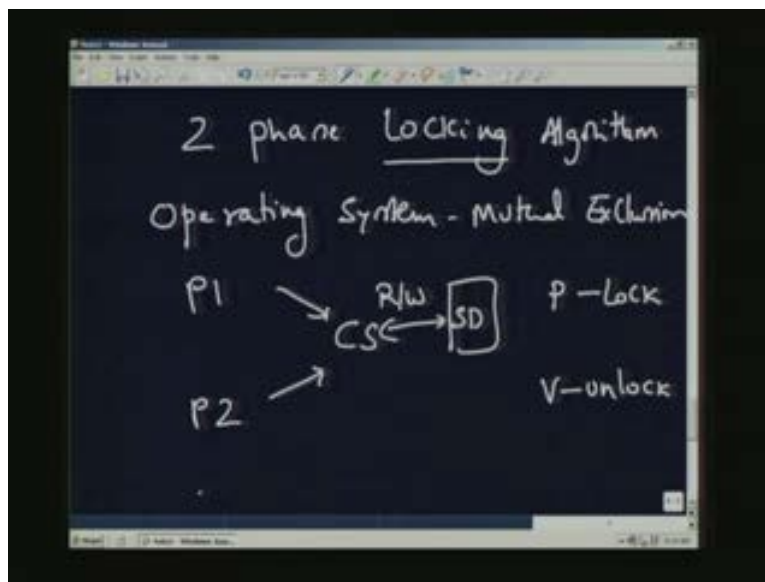 2 phase Locking Algorithm
Operating System - Mutual Exclusion
P1
R/W
CS
SD
P - Lock
P2
V - unlock